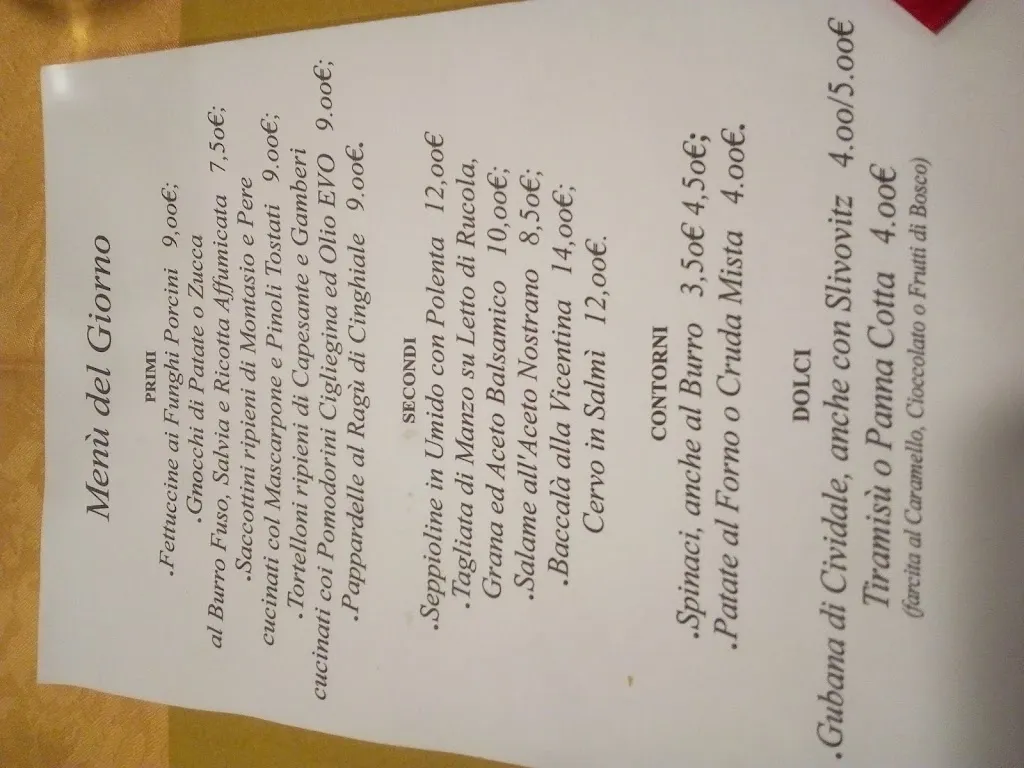 Menù del Giorno
PRIMI
.Fettuccine ai Funghi Porcini 9,00€;
.Gnocchi di Patate o Zucca
al Burro Fuso, Salvia e Ricotta Affumicata 7,50€;
.Saccottini ripieni di Montasio e Pere
cucinati col Mascarpone e Pinoli Tostati 9.00€;
.Tortelloni ripieni di Capesante e Gamberi
cucinati coi Pomodorini Cigliegina ed Olio EVO 9.00€;
.Pappardelle al Ragù di Cinghiale 9.00€.
SECONDI
.Seppioline in Umido con Polenta 12,00€
.Tagliata di Manzo su Letto di Rucola,
Grana ed Aceto Balsamico 10,00€;
.Salame all'Aceto Nostrano 8,50€;
.Baccalà alla Vicentina 14,00€;
Cervo in Salmì 12,00€.
CONTORNI
.Spinaci, anche al Burro 3,50€ 4,50€;
.Patate al Forno o Cruda Mista 4.00€.
DOLCI
.Gubana di Cividale, anche con Slivovitz 4.00/5.00€
Tiramisù o Panna Cotta 4.00€
(farcita al Caramello, Cioccolato o Frutti di Bosco)